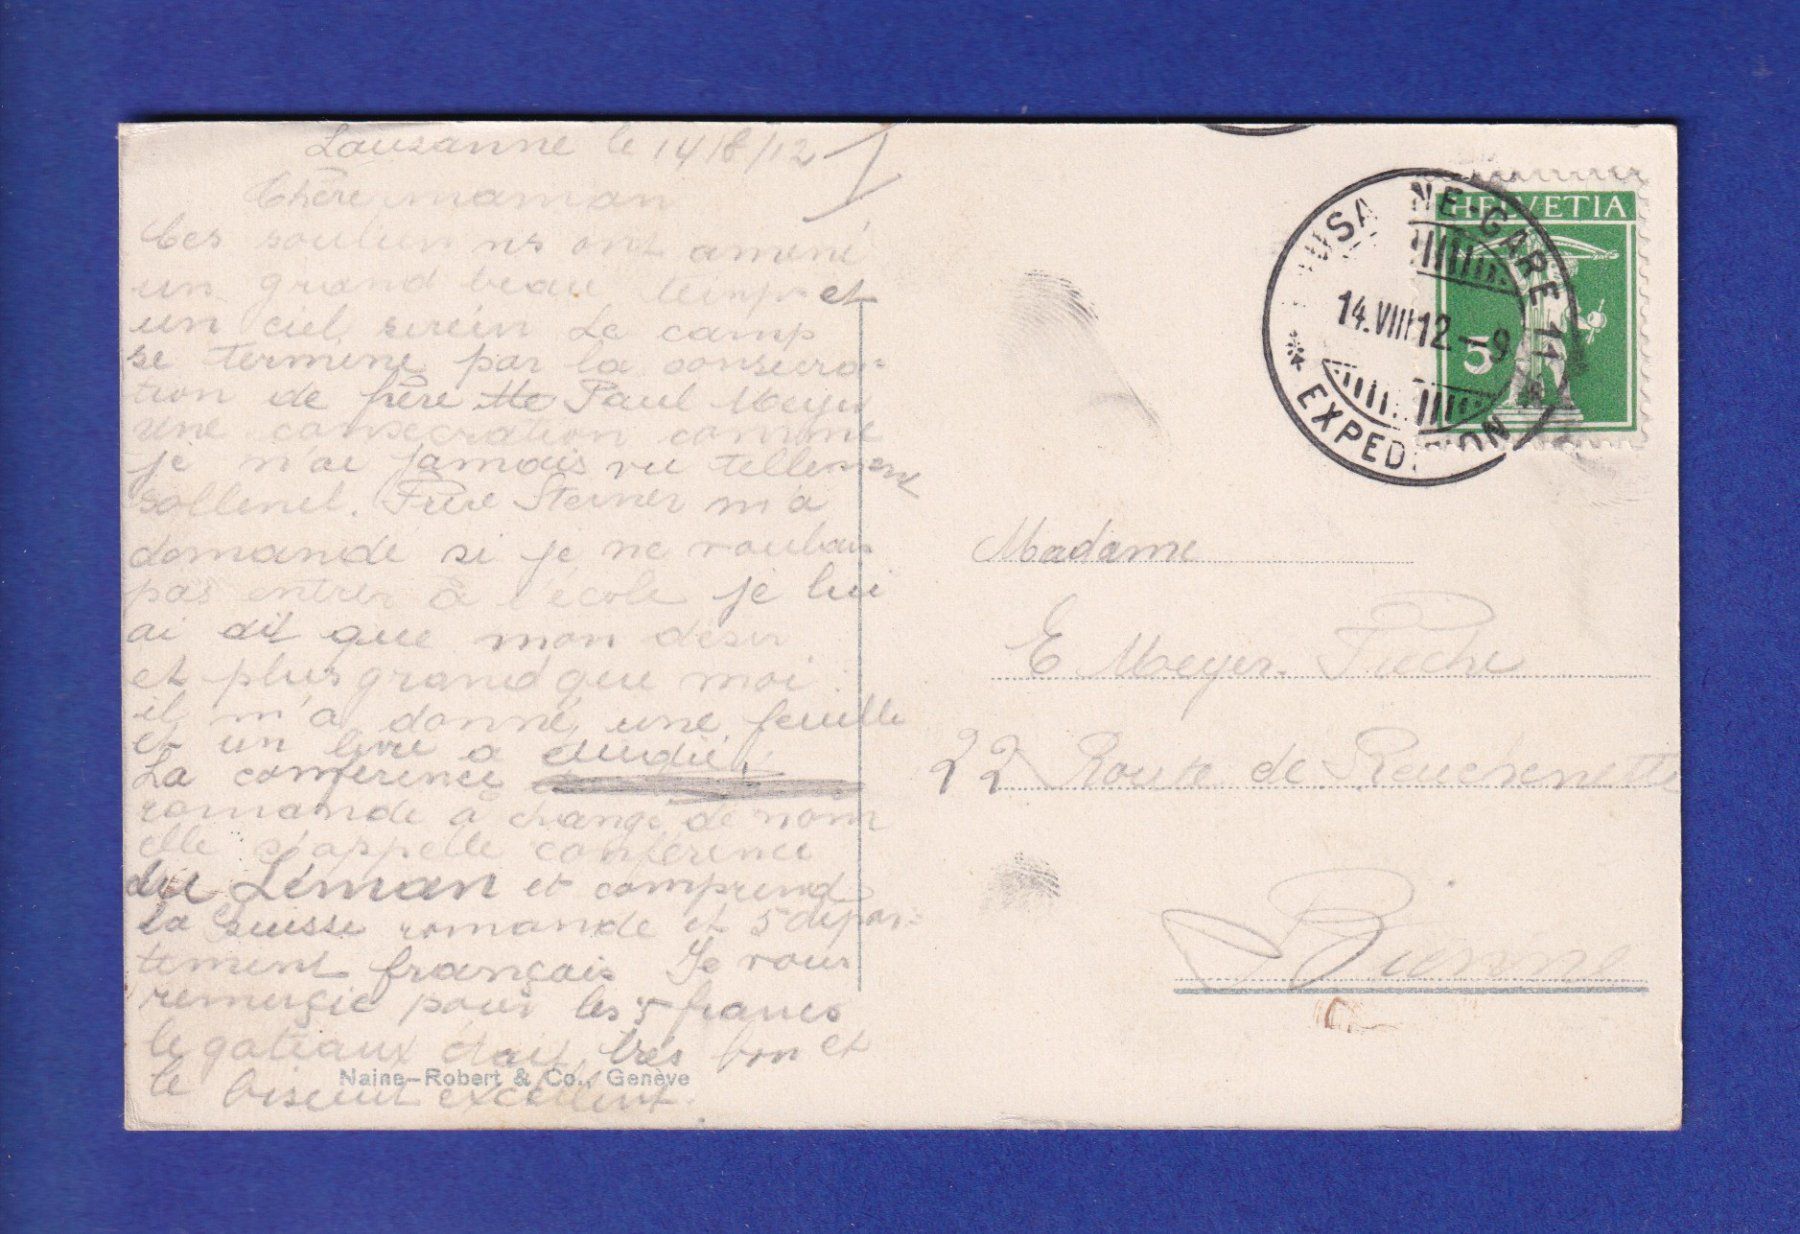 Lausanne le 14/8/12
Chère maman
Ces ont amené
un grand beau temps et
un ciel serein Le camp
se termine par la consecra-
tion de frère Paul Meyer
une consecration comme
je n'ai jamais vu tellement
sollenel. Frère Sterner m'a
demandé si je ne voulais
pas entrer à l'école je lui
ai dit que mon desir
et plus grand que moi
il m'a donné une feuille
et un livre a etudié.
La conférence
romande à changé de nom
elle s'appelle conférence
du Léman et comprend
la Suisse romande et 5 dépar-
tement français Je vous
remercie pour les 5 francs
le gateaux était très bon et
le biscuit excellent.
Naine-Robert & Co., Genève
HELVETIA
5
LAUSANNE-GARE
14.VIII 12.-9
11
EXPEDITION
Madame
E Meyer-
22 Route de Reuchenette
Bienne